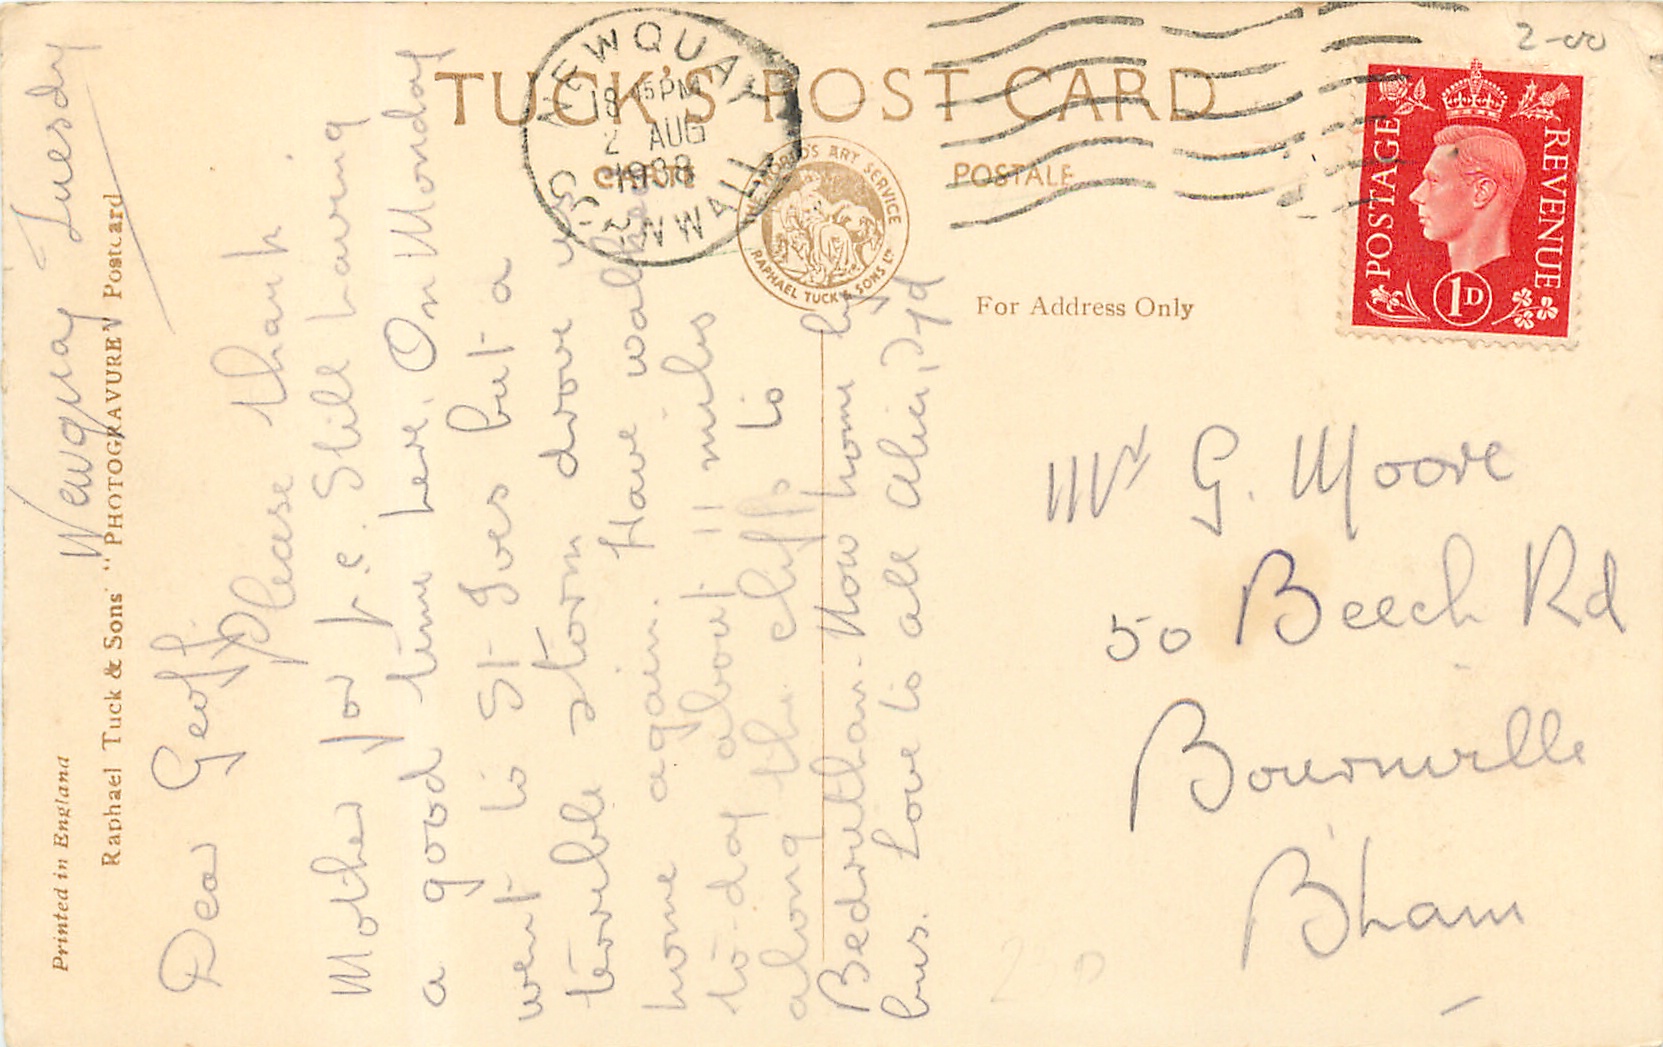 TUCK'S POST CARD
CARTE POSTALE
THE WORLD'S ART SERVICE
RAPHAEL TUCK & SONS LTD
NEWQUAY
CORNWALL
PM
2 AUG
1938
POSTAGE
REVENUE
1D
2-00
For Address Only
Printed in England
Raphael Tuck & Sons' "PHOTOGRAVURE" Postcard
Newquay Tuesday
Dear Geoff, please thank
Mother for p.c. Still having
a good time here. On Monday
went to St Ives but a
terrible storm drove us
home again. Have walked
to-day about 11 miles
along the cliffs to
Bedruthan. Now home by
bus. Love to all
Mr G. Moore
50 Beech Rd
Bournville
B'ham